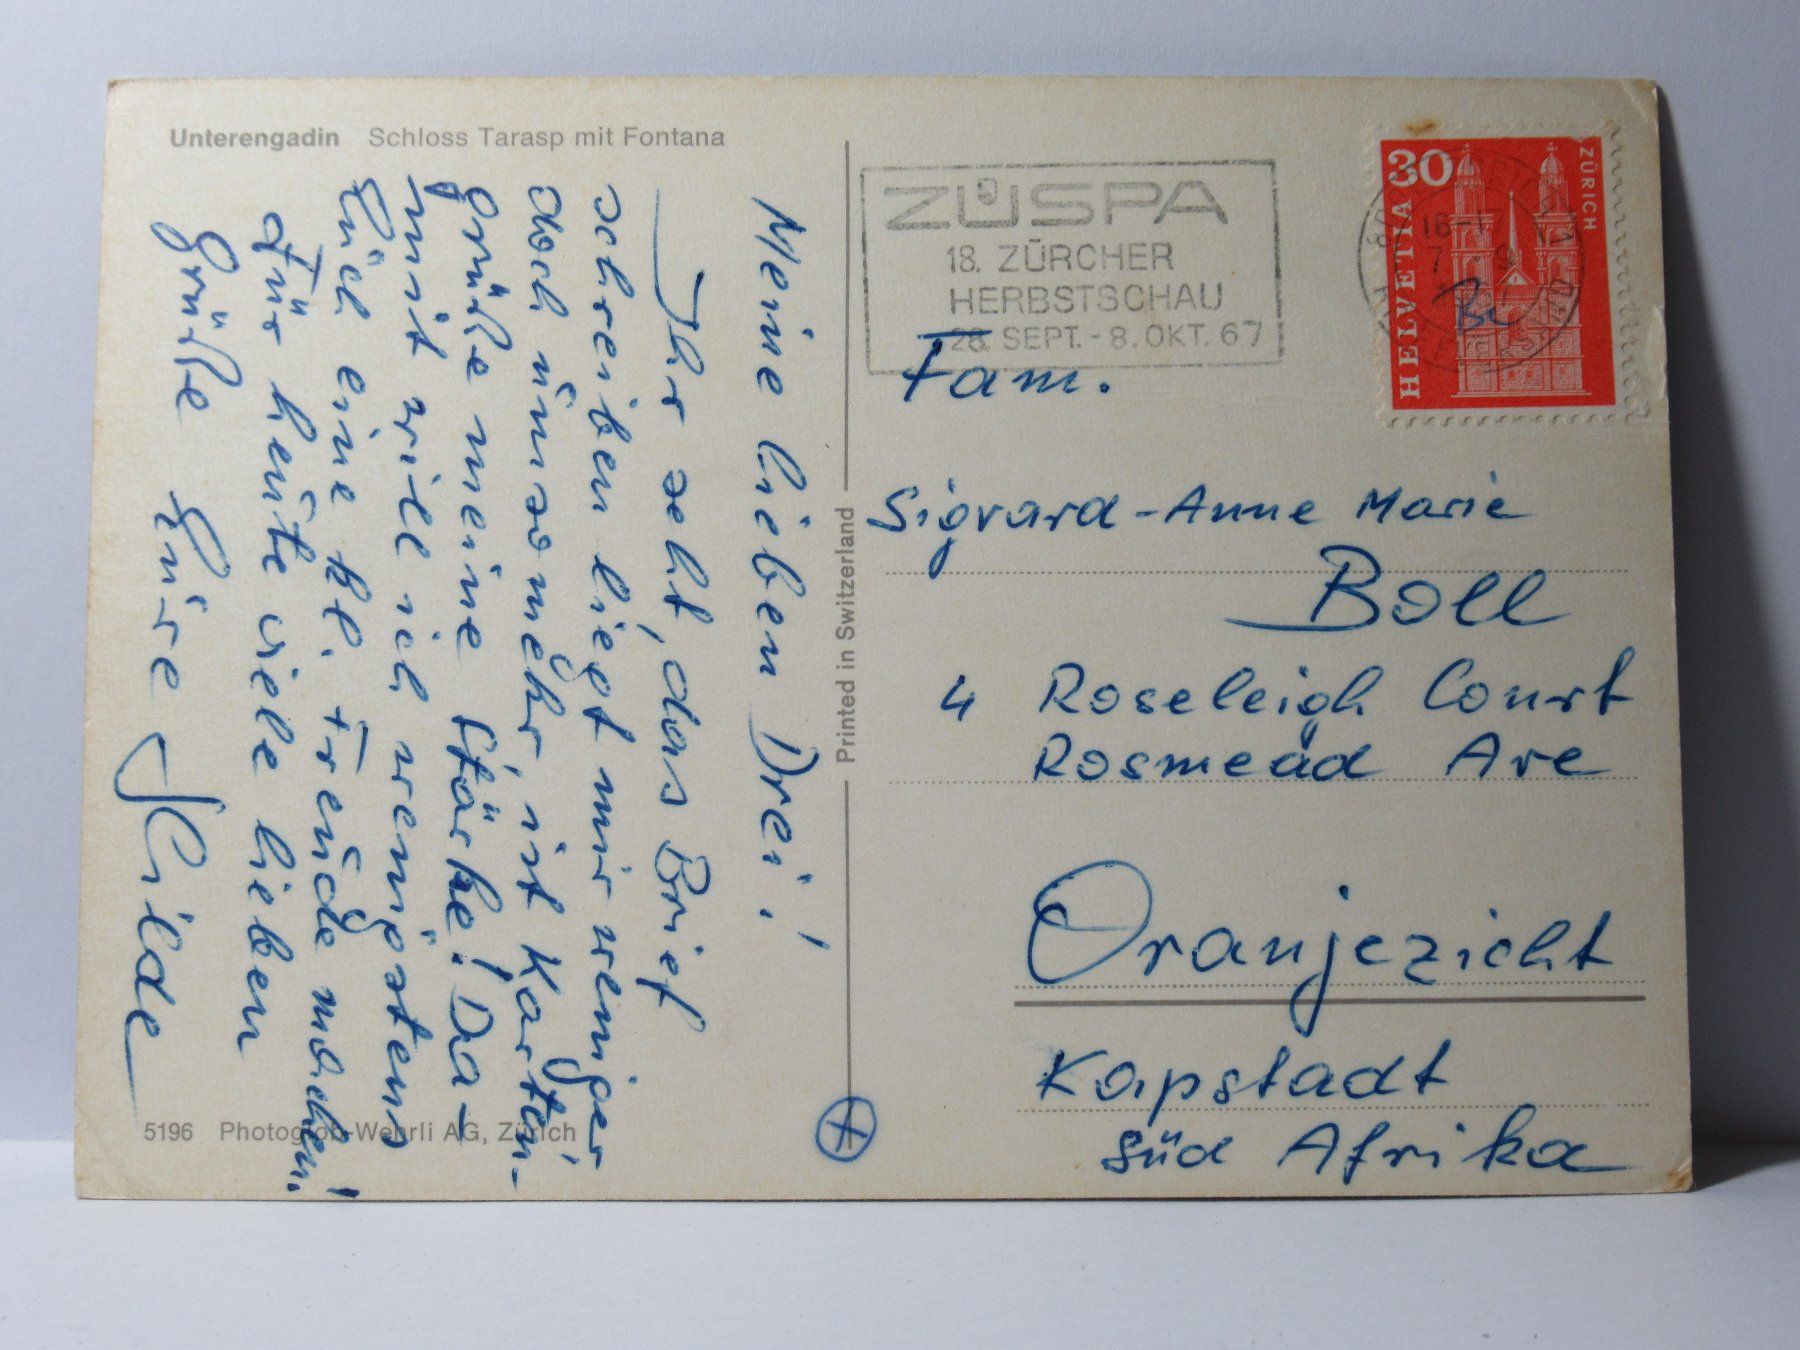 Unterengadin Schloss Tarasp mit Fontana
Meine lieben Drei!
Ihr seht, das Brief
schreiben liegt mir weniger
doch ümsomehr, ist Karten-
grüße meine Stärke! Da-
mit will ich wenigstens
Eüch eine kl. Freüde machen!
Für heüte viele lieben
Grüße Eüre Hilde
5196 Photoglob-Wehrli AG, Zürich
Printed in Switzerland
ZÜSPA
18. ZÜRCHER
HERBSTSCHAU
28. SEPT. - 8. OKT. 67
30
HELVETIA
ZÜRICH
16-17
Fam.
Sigvard - Anne Marie
Boll
4 Roseleigh Court
Rosmead Ave
Oranjezicht
Kapstadt
Süd Afrika